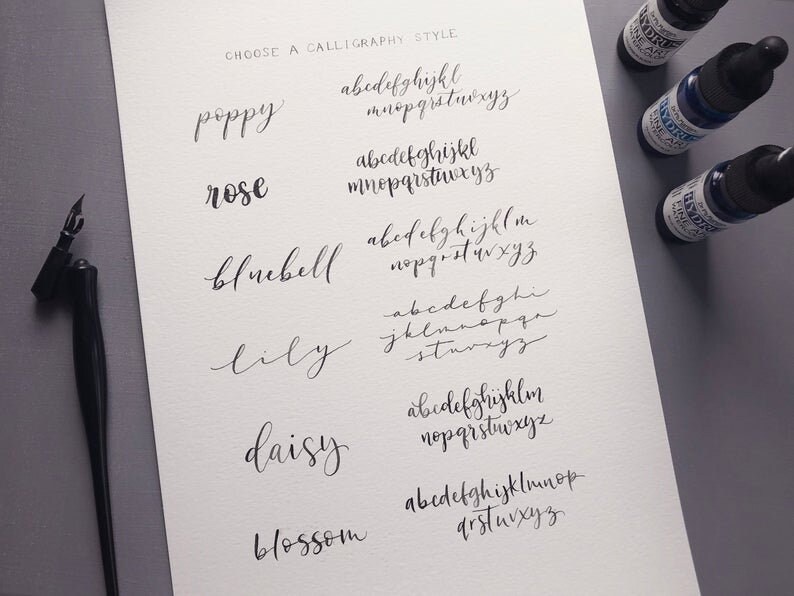 CHOOSE A CALLIGRAPHY STYLE
poppy
abcdefghijkl
mnopqrstuvxyz
rose
abcdefghijkl
mnopqrstuvxyz
bluebell
abcdefghijklm
nopqrstuvxyz
lily
abcdefghi
jklmnopqr
stuvxyz
daisy
abcdefghijklm
nopqrstuvxyz
blossom
abcdefghijklmnop
qrstuvxyz
HYDRUS
FINE ART
WATERCOLOR
HYDRUS
FINE ART
WATERCOLOR
HYDRUS
FINE ART
WATERCOLOR